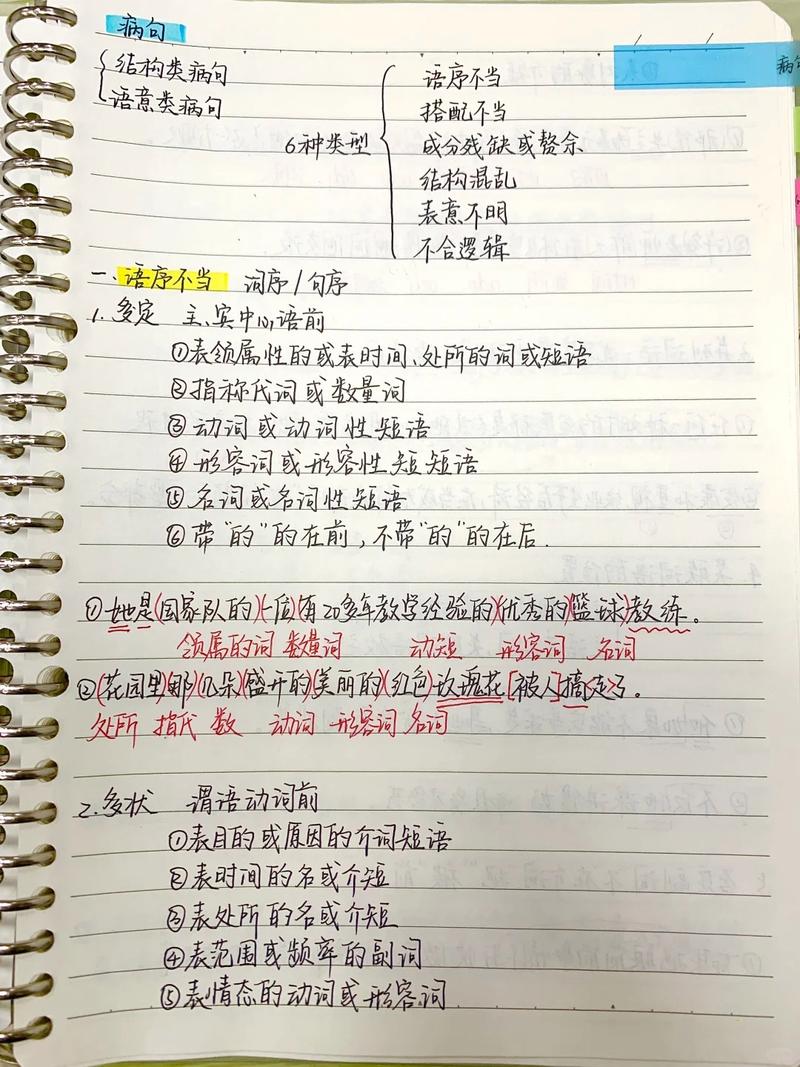 病句
病句
结构类病句
语意类病句
6种类型
语序不当
搭配不当
成分残缺或赘余
结构混乱
表意不明
不合逻辑
一、语序不当 词序/句序
1.多定 主、宾中心语前
①表领属性的或表时间、处所的词或短语
②指称代词或数量词
③动词或动词性短语
④形容词或形容性短短语
⑤名词或名词性短语
⑥带"的"的在前,不带"的"的在后.
①她是(国家队的)(一位)(有20多年教学经验的)(优秀的)(篮球)教练。
领属的词 数量词 动短 形容词 名词
②(花园里)(那)(几朵)(盛开的)(美丽的)(红色)玫瑰花[被人]搞走了。
处所 指代 数 动词 形容词 名词
2.多状 谓语动词前
①表目的或原因的介词短语
②表时间的名或介短
③表处所的名或介短
④表范围或频率的副词
⑤表情态的动词或形容词